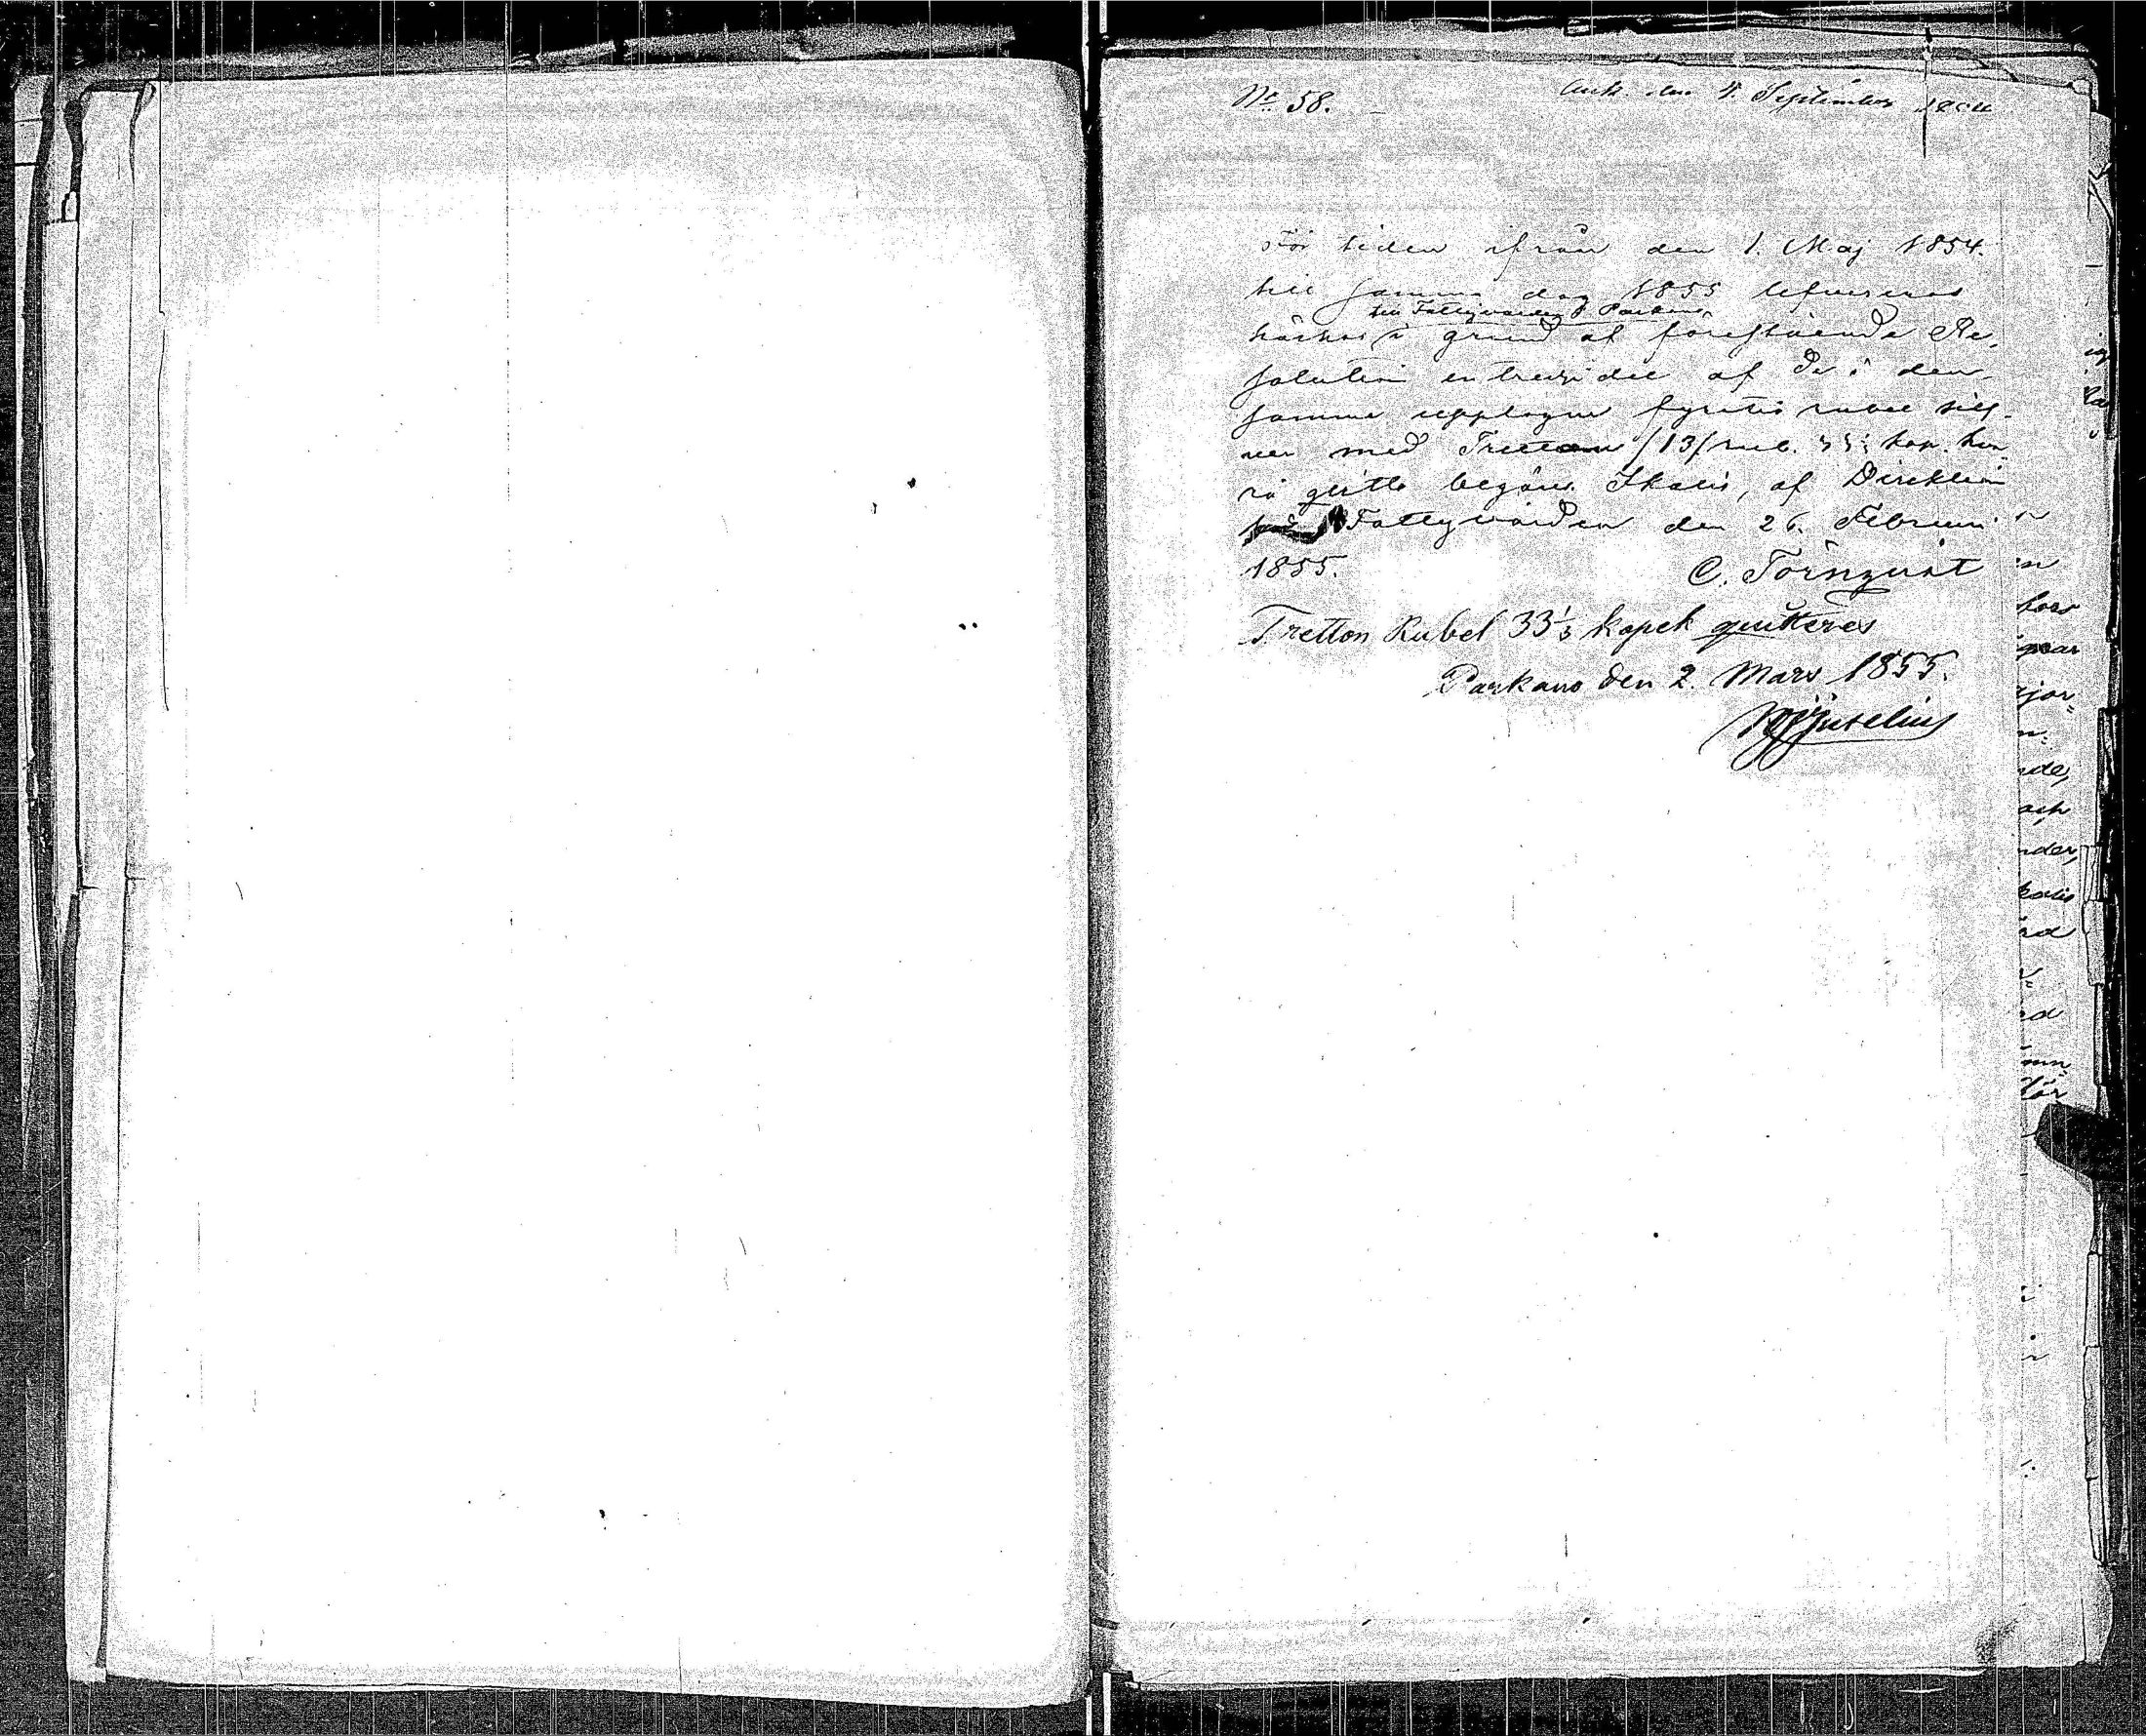 No 58.
Ank. den 4. September
För tiden ifrån den 1. Maj 1854.
till samma dag 1855 lefvereras
till Fattigvården i Parkano
härhos å grund af föreståendе Re-
solution en tredjedel af de i den-
samma upptagne fyratio rubel silf-
ver med Tretton /13/ rub. 33⅓ kop. hvar-
å qvitto begäres. Ikalis, af Direktion
Fattigvården den 26. Februari
1855.
C. Törnqvist
Tretton Rubel 33⅓ kopek quitteres
Parkano den 2. Mars 1855.